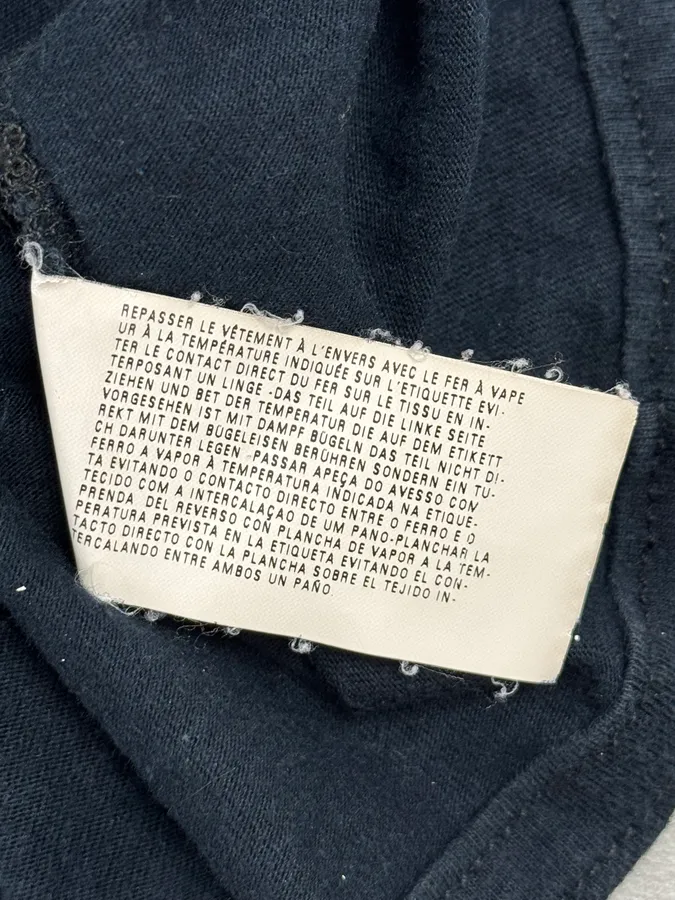 REPASSER LE VÊTEMENT À L'ENVERS AVEC LE FER À VAPE
UR À LA TEMPÉRATURE INDIQUÉE SUR L'ETIQUETTE EVI-
TER LE CONTACT DIRECT DU FER SUR LE TISSU EN IN-
TERPOSANT UN LINGE -DAS TEIL AUF DIE LINKE SEITE
ZIEHEN UND BET DER TEMPERATUR DIE AUF DEM ETIKETT
VORGESEHEN IST MIT DAMPF BÜGELN DAS TEIL NICHT DI-
REKT MIT DEM BÜGELEISEN BERÜHREN SONDERN EIN TU-
CH DARUNTER LEGEN -PASSAR APEÇA DO AVESSO COM
FERRO A VAPOR À TEMPERATURA INDICADA NA ETIQUE-
TA EVITANDO O CONTACTO DIRECTO ENTRE O FERRO E O
TECIDO COM A INTERCALAÇAO DE UM PANO-PLANCHAR LA
PRENDA DEL REVERSO COÑ PLANCHA DE VAPOR A LA TEM-
PERATURA PREVISTA EN LA ETIQUETA EVITANDO EL CON-
TACTO DIRECTO CON LA PLANCHA SOBRE EL TEJIDO IN-
TERCALANDO ENTRE AMBOS UN PAÑO